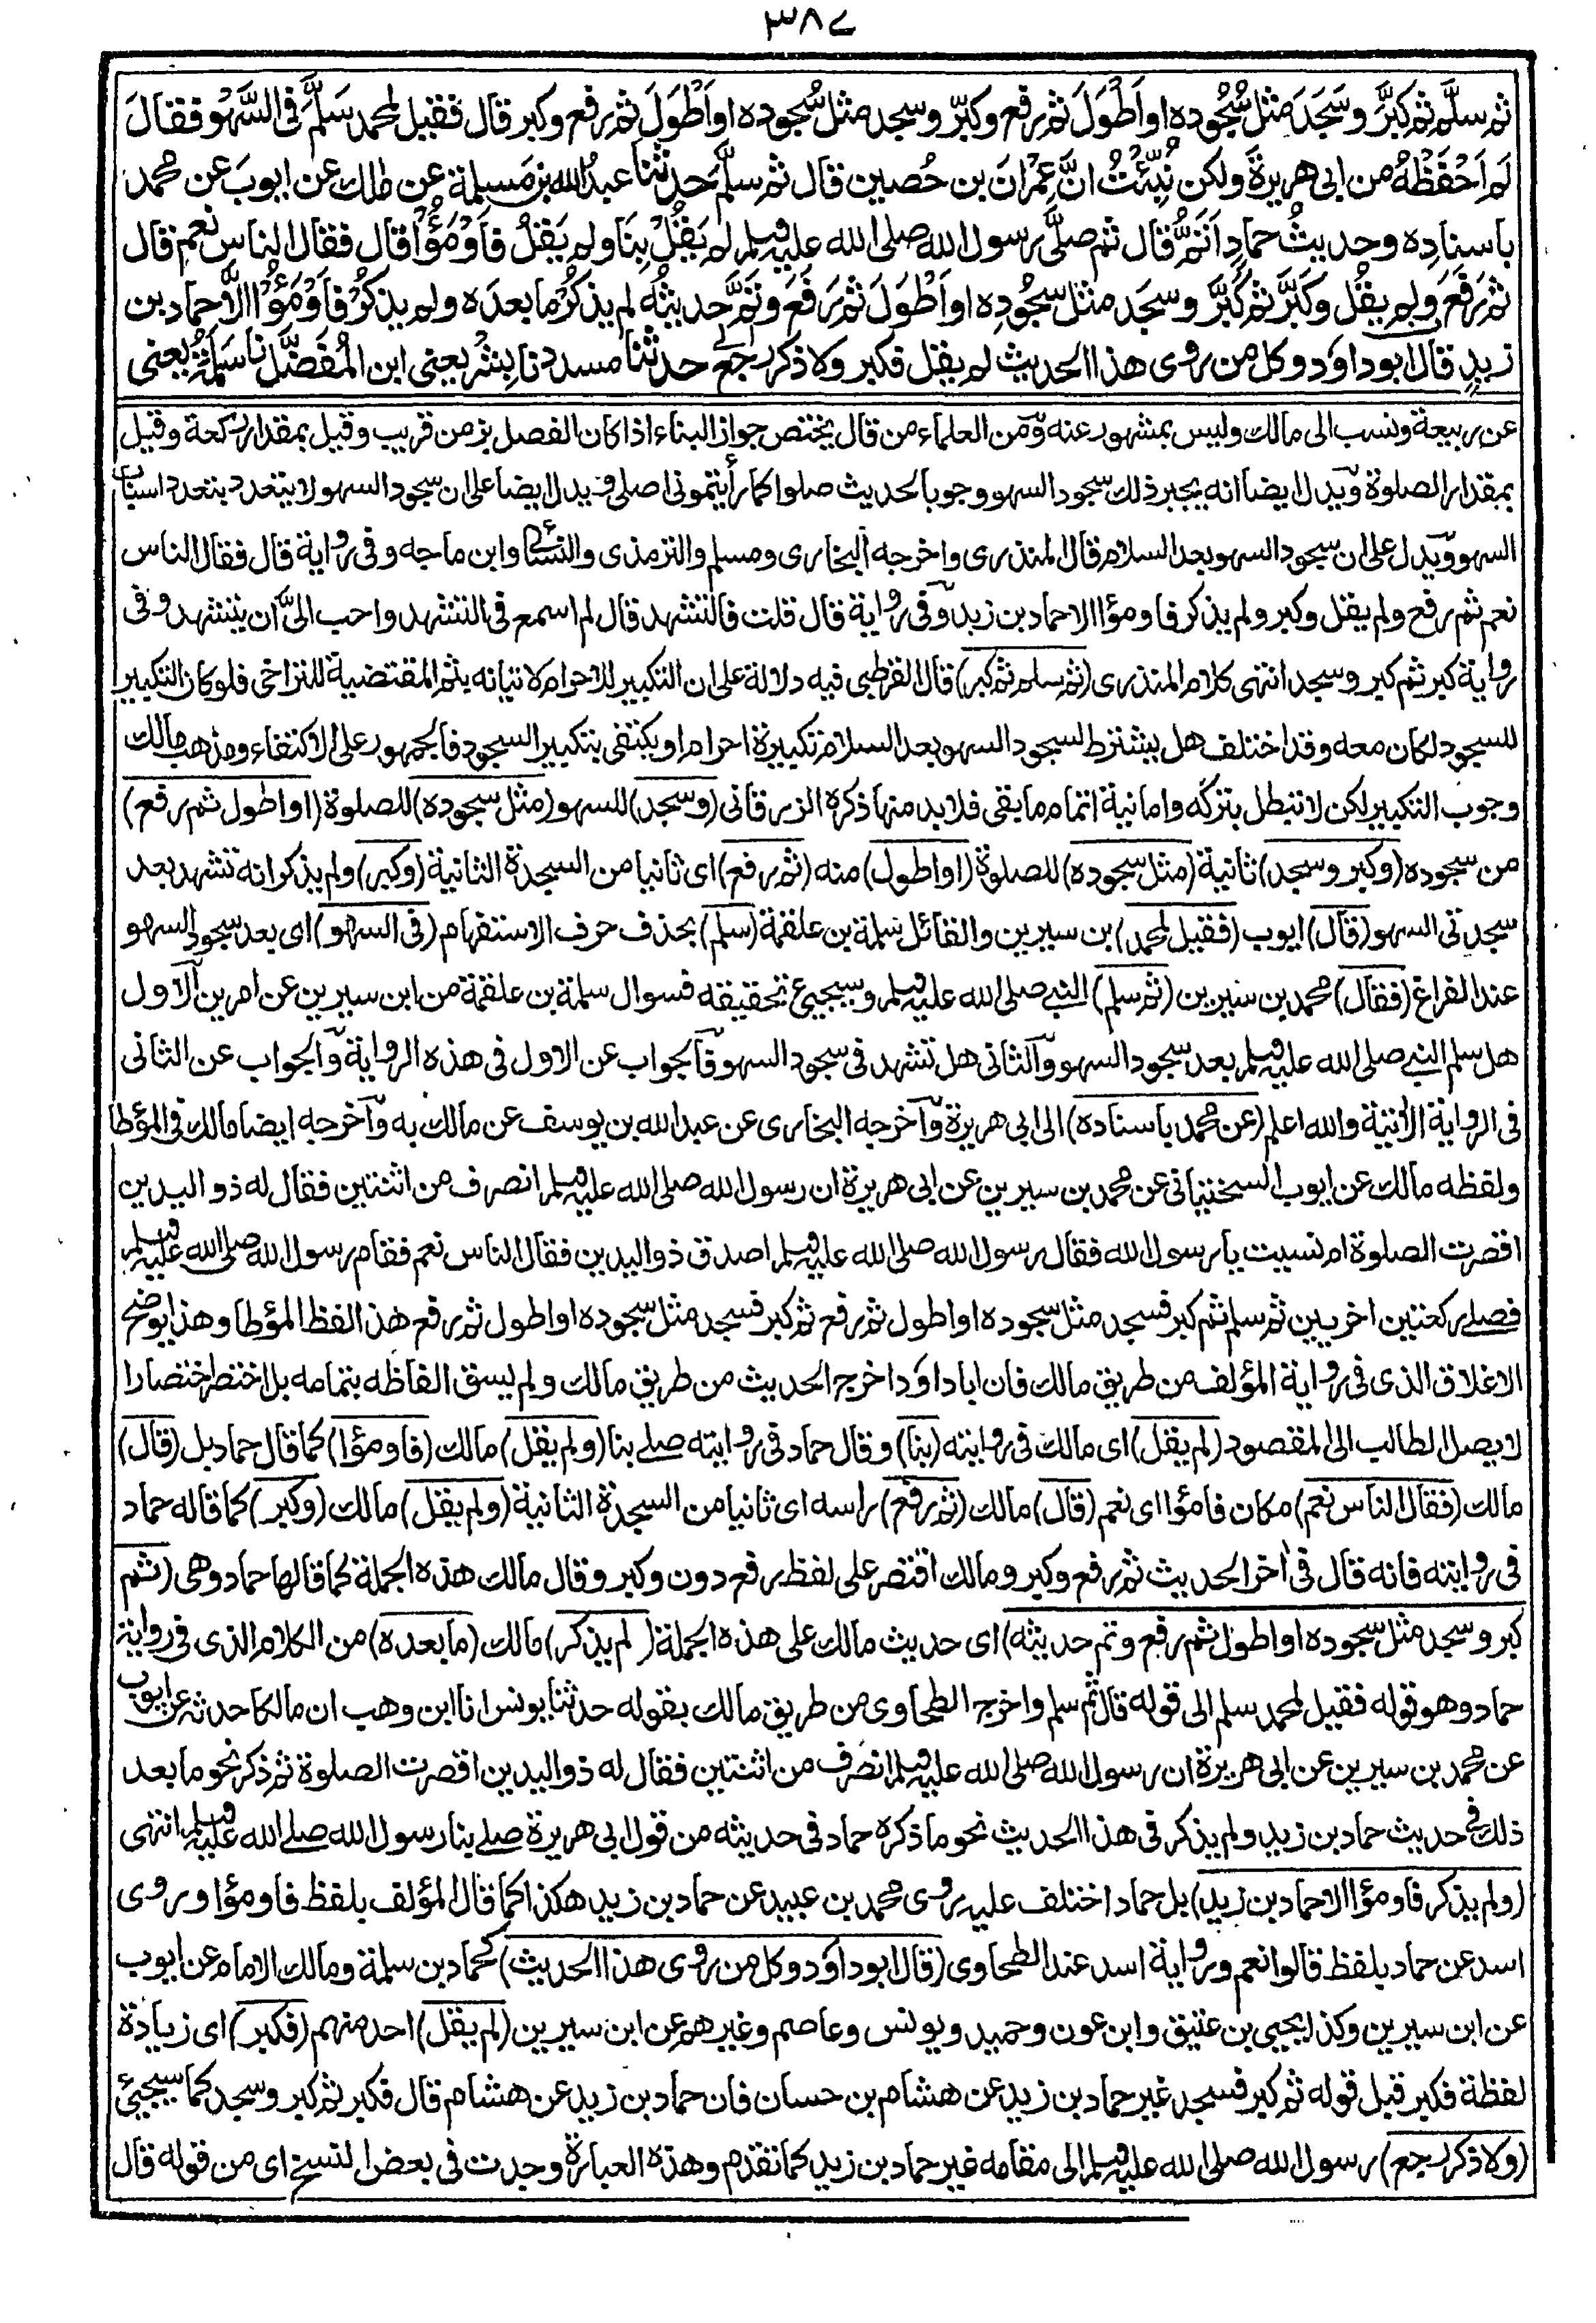 ٣٨٧
ثم سلَّم ثم كبَّر وسَجَدَ مثلَ سُجُوده او اَطْوَلَ ثم رفع وكبّر وسجد مثل سُجوده او اَطْوَلَ ثم رفع وكبر قال فقيل لمحمد سَلَّمَ فى السَّهْو فقالَ
لم اَحْفَظْهُ من ابى هريرةَ ولكن نُبِّئْتُ انَّ عِمْرَانَ بن حُصين قال ثم سلَّمَ حدثنا عبدُ الله بن مَسلمة عن ملك عن ايوبَ عن محمد
باسنادِه وحديثُ حمادٍ اَتَمُّ قال ثم صلَّى رسول الله صلى الله عليه وسلم لم يَقُلْ بِنَا ولم يَقُلْ فَاَوْمَؤُا قال فقال الناس نعم قال
ثم رَفَعَ ولم يقُل وكَبَّرَ ثم كَبَّرَ وسجَد مثل سجُودِه او اَطْوَلَ ثم رَفَعَ وتَمَّ حديثُه لم يذكُرْ ما بعدَه ولم يذكُرْ فَاَوْمَؤُا الَّا حماد بن
زيدٍ قال ابو داؤد وكل من روى هذا الحديث لم يقل فكبر ولا ذكر رجع حدثنا مسدد نا بِشْر يعنى ابن المُفَضَّل نا سَلَمَةُ يعنى
عن ربيعة ونسب الى مالك وليس بمشهور عنه ومن العلماء من قال يختص جواز البناء اذا كان الفصل بزمن قريب وقيل بمقدار ركعة وقيل
بمقدار الصلوة ويدل ايضا انه يجبر ذلك سجود السهو وجوبا لحديث صلوا كما رأيتمونى اصلى ويدل ايضا على ان سجود السهو لا يتعدد بتعدد اسباب
السهو ويدل على ان سجود السهو بعد السلام قال المنذرى واخرجه البخارى ومسلم والترمذى والنسائى وابن ماجه وفى رواية قال فقال الناس
نعم ثم رفع ولم يقل وكبر ولم يذكر فاومؤا الا حماد بن زيد وفى رواية قال قلت فالتشهد قال لم اسمع فى التشهد واحب الىَّ ان يتشهد وفى
رواية كبر ثم كبر وسجد انتهى كلام المنذرى (ثم سلم ثم كبر) قال القرطبى فيه دلالة على ان التكبير للاحرام لاتيانه بثم المقتضية للتراخى فلو كان التكبير
للسجود لكان معه وقد اختلف هل يشترط لسجود السهو بعد السلام تكبيرة احرام او يكتفى بتكبير السجود فالجمهور على الاكتفاء ومذهب مالك
وجوب التكبير لكن لا تبطل بتركه واما نية اتمام ما بقى فلا بد منها ذكره الزرقانى (وسجد) للسهو (مثل سجوده) للصلوة (او اطول ثم رفع)
من سجوده (وكبر وسجد) ثانية (مثل سجوده) للصلوة (او اطول) منه (ثم رفع) اى ثانيا من السجدة الثانية (وكبر) ولم يذكر انه تشهد بعد
سجدتى السهو (قال) ايوب (فقيل لمحمد) بن سيرين والقائل سلمة بن علقمة (سلم) بحذف حرف الاستفهام (فى السهو) اى بعد سجود السهو
عند الفراغ (فقال) محمد بن سيرين (ثم سلم) النبى صلى الله عليه وسلم وسيجيئ تحقيقه فسوال سلمة بن علقمة من ابن سيرين عن امرين الاول
هل سلم النبى صلى الله عليه وسلم بعد سجود السهو والثانى هل تشهد فى سجود السهو فالجواب عن الاول فى هذه الرواية والجواب عن الثانى
فى الرواية الاتية والله اعلم (عن محمد باسناده) الى ابى هريرة واخرجه البخارى عن عبد الله بن يوسف عن مالك به واخرجه ايضا مالك فى المؤطا
ولفظه مالك عن ايوب السختيانى عن محمد بن سيرين عن ابى هريرة ان رسول الله صلى الله عليه وسلم انصرف من اثنتين فقال له ذو اليدين
اقصرت الصلوة ام نسيت يا رسول الله فقال رسول الله صلى الله عليه وسلم اصدق ذو اليدين فقال الناس نعم فقام رسول الله صلى الله عليه وسلم
فصلى ركعتين اخريين ثم سلم ثم كبر فسجد مثل سجوده او اطول ثم رفع ثم كبر فسجد مثل سجوده او اطول ثم رفع هذ الفظ المؤطا وهذا يوضح
الاغلاق الذى فى رواية المؤلف من طريق مالك فان ابا داؤد اخرج الحديث من طريق مالك ولم يسق الفاظه بتمامه بل اختصر اختصارا
لا يصل الطالب الى المقصود (لم يقل) اى مالك فى روايته (بنا) وقال حماد فى روايته صلى بنا (ولم يقل) مالك (فاومؤا) كما قال حماد بل (قال)
مالك (فقال الناس نعم) مكان فامؤا اى نعم (قال) مالك (ثم رفع) راسه اى ثانيا من السجدة الثانية (ولم يقل) مالك (وكبر) كما قاله حماد
فى روايته فانه قال فى أخر الحديث ثم رفع وكبر ومالك اقتصر على لفظ رفع دون وكبر وقال مالك هذه الجملة كما قالها حماد وهى (ثم
كبر وسجد مثل سجوده او اطول ثم رفع وتم حديثه) اى حديث مالك على هذه الجملة (لم يذكر) مالك (ما بعده) من الكلام الذى فى رواية
حماد وهو قوله فقيل لمحمد سلم الى قوله قال ثم سلم واخرج الطحاوى من طريق مالك بقوله حدثنا يونس انا ابن وهب ان مالكا حدثه عن ايوب
عن محمد بن سيرين عن ابى هريرة ان رسول الله صلى الله عليه وسلم انصرف من اثنتين فقال له ذو اليدين اقصرت الصلوة ثم ذكر نحو ما بعد
ذلك فى حديث حماد بن زيد ولم يذكر فى هذا الحديث نحو ما ذكره حماد فى حديثه من قول ابى هريرة صلى بنا رسول الله صلى الله عليه وسلم انتهى
(ولم يذكر فاومؤا الا حماد بن زيد) بل حماد اختلف عليه روى محمد بن عبيد عن حماد بن زيد هكذا كما قال المؤلف بلفظ فاومؤا وروى
اسد عن حماد بلفظ قالوا نعم ورواية اسد عند الطحاوى (قال ابو داؤد وكل من روى هذا الحديث) كحماد بن سلمة ومالك الامام عن ايوب
عن ابن سيرين وكذا يحيى بن عتيق وابن عون وحميد ويونس وعاصم وغيرهم عن ابن سيرين (لم يقل) احد منهم (فكبر) اى زيادة
لفظة فكبر قبل قوله ثم كبر فسجد غير حماد بن زيد عن هشام بن حسان فان حماد بن زيد عن هشام قال فكبر ثم كبر وسجد كما سيجيئ
(ولا ذكر رجع) رسول الله صلى الله عليه وسلم الى مقامه غير حماد بن زيد كما تقدم وهذه العبارة وجدت فى بعض النسخ اى من قوله قال